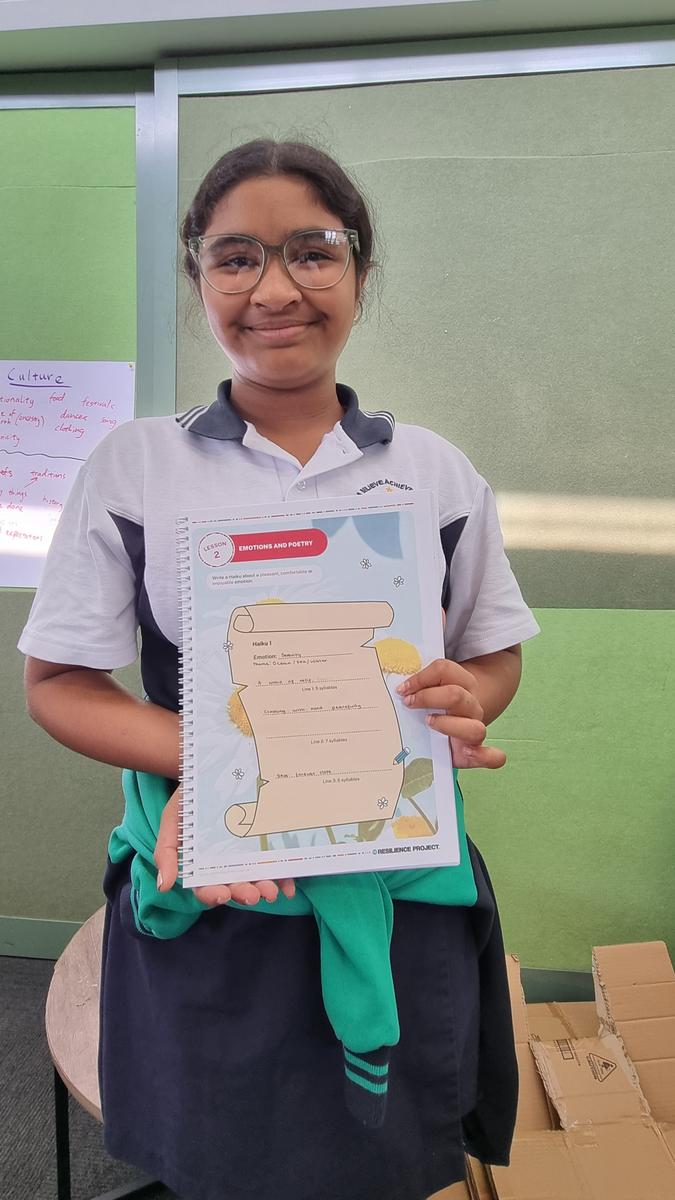 Culture
tionality food festivals
dances song
clothing
traditions
things history
done
expectations
BELIEVE.ACHIEVE
LESSON
2
EMOTIONS AND POETRY
Write a Haiku about a pleasant, comfortable or
enjoyable emotion.
Haiku 1
Emotion: Serenity
Theme: Ocean / Sea / Water
A wind of
Line 1: 5 syllables
my mind peacefully
Line 2: 7 syllables
Stay forever
Line 3: 5 syllables
© RESILIENCE PROJECT.